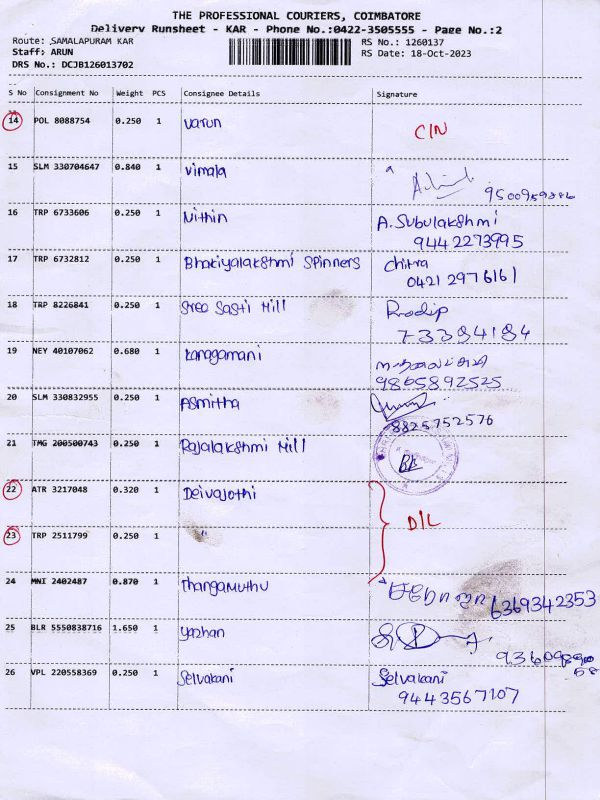 THE PROFESSIONAL COURIERS, COIMBATORE
Delivery Runsheet - KAR - Phone No.:0422-3505555 - Page No.:2
Route: SAMALAPURAM KAR RS No.: 1260137
Staff: ARUN RS Date: 18-Oct-2023
DRS No.: DCJB126013702
S No Consignment No Weight PCS Consignee Details Signature
14 POL 8088754 0.250 1 Varun C/N
15 SLM 330704647 0.840 1 Vimala
16 TRP 6733606 0.250 1 Nithin A. Subulakshmi
9442273995
17 TRP 6732812 0.250 1 Bhakiyalakshmi Spinners Chitra
0421 2976161
18 TRP 8226841 0.250 1 Sree Sasti Mill Pradip
73384184
19 NEY 40107062 0.680 1 Kanagamani
9865892525
20 SLM 330832955 0.250 1 Asmitha
8825752576
21 TMG 200500743 0.250 1 Rajalakshmi Mill
22 ATR 3217048 0.320 1 Deivajothi D/L
23 TRP 2511799 0.250 1 "
24 MNI 2402487 0.870 1 Thangamuthu 6369342353
25 BLR 5550838716 1.650 1 Yazhan
26 VPL 220558369 0.250 1 Selvakani Selvakani
9443567107